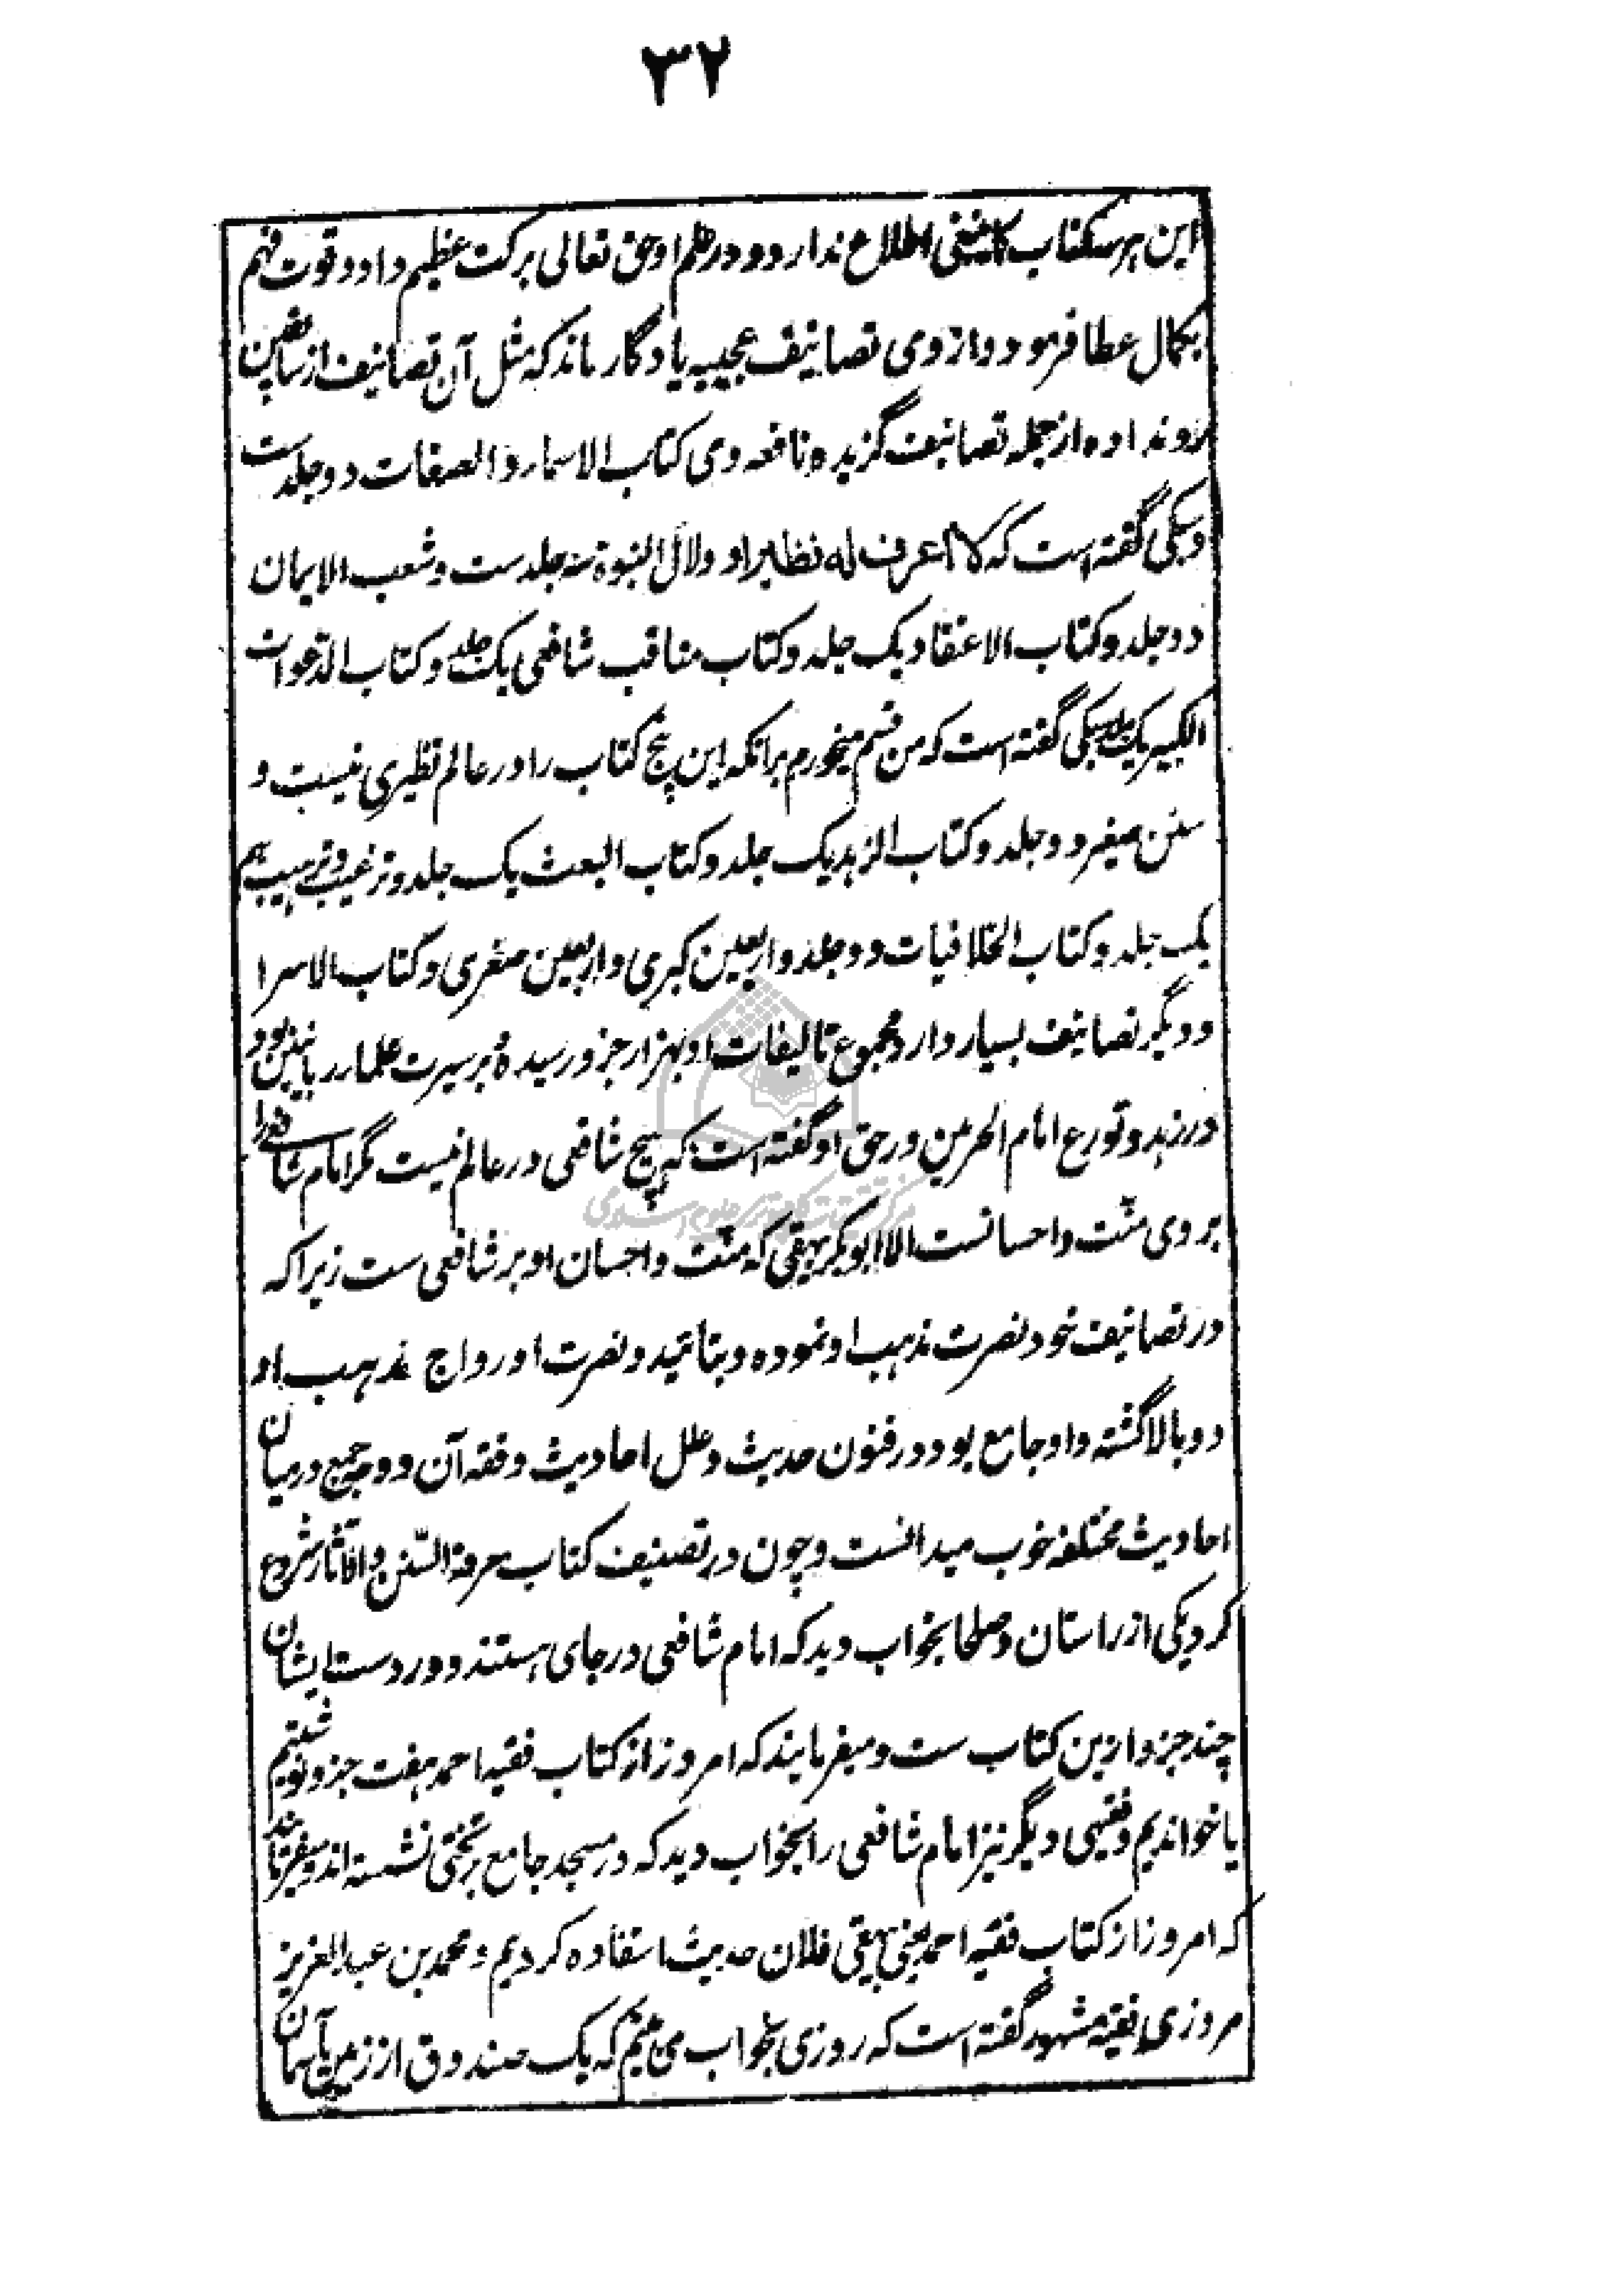 ۳۲
این هر سه کتاب کما ینبغی اطلاع ندارد و در علم او حق تعالی برکت عظیم داد و قوت فهم
بکمال عطا فرمود و از وی تصانیف عجیبه یادگار ماند که مثل آن تصانیف از سابقین
رو نداده از جمله تصانیف گزیده نافعه وی کتاب الاسماء والصفات دو جلدست
و سبکی گفته است که لا اعرف له نظیرا و دلائل النبوة سه جلدست و شعب الایمان
دو جلد و کتاب الاعتقاد یک جلد و کتاب مناقب شافعی یک جلد و کتاب الدعوات
الکبیر یک جلد سبکی گفته است که من قسم میخورم برانکه این پنج کتاب را در عالم نظیری نیست و
سنن صغیر دو جلد و کتاب الزهد یک جلد و کتاب البعث یک جلد و ترغیب و ترهیب هم
یک جلد و کتاب الخلافیات دو جلد و اربعین کبری و اربعین صغری و کتاب الاسرا
و دیگر تصانیف بسیار دارد مجموع تالیفات او بهزار جزو رسیده بر سیرت علماء ربانیین بود
در زهد و تورع امام الحرمین در حق او گفته است که هیچ شافعی در عالم نیست مگر امام شافعی را
بر وی منّت و احسانست الا ابو بکر بیهقی که منّت و احسان او بر شافعی ست زیرا که
در تصانیف خود نصرت مذهب او نموده و بتائید و نصرت او رواج مذهب او
دوبالا گشته و او جامع بود در فنون حدیث و علل احادیث و فقه آن و وجه جمع درمیان
احادیث مختلفه خوب میدانست و چون در تصنیف کتاب معرفة السّنن و الآثار شروع
کرد یکی از راستان و صلحا بخواب دید که امام شافعی در جای هستند و در دست ایشان
چند جزو ازین کتاب ست و میفرمایند که امروز از کتاب فقیه احمد هفت جزو نوشتیم
یا خواندیم و فقیهی دیگر نیز امام شافعی را بخواب دید که در مسجد جامع بر تختی نشسته اند و میفرمایند
که امروز از کتاب فقیه احمد یعنی بیهقی فلان حدیث استفاده کردیم و محمد بن عبد العزیز
مروزی فقیه مشهور گفته است که روزی بخواب می بینم که یک صندوق از زمین بآسمان
مرکز تحقیقات کامپیوتری علوم اسلامی